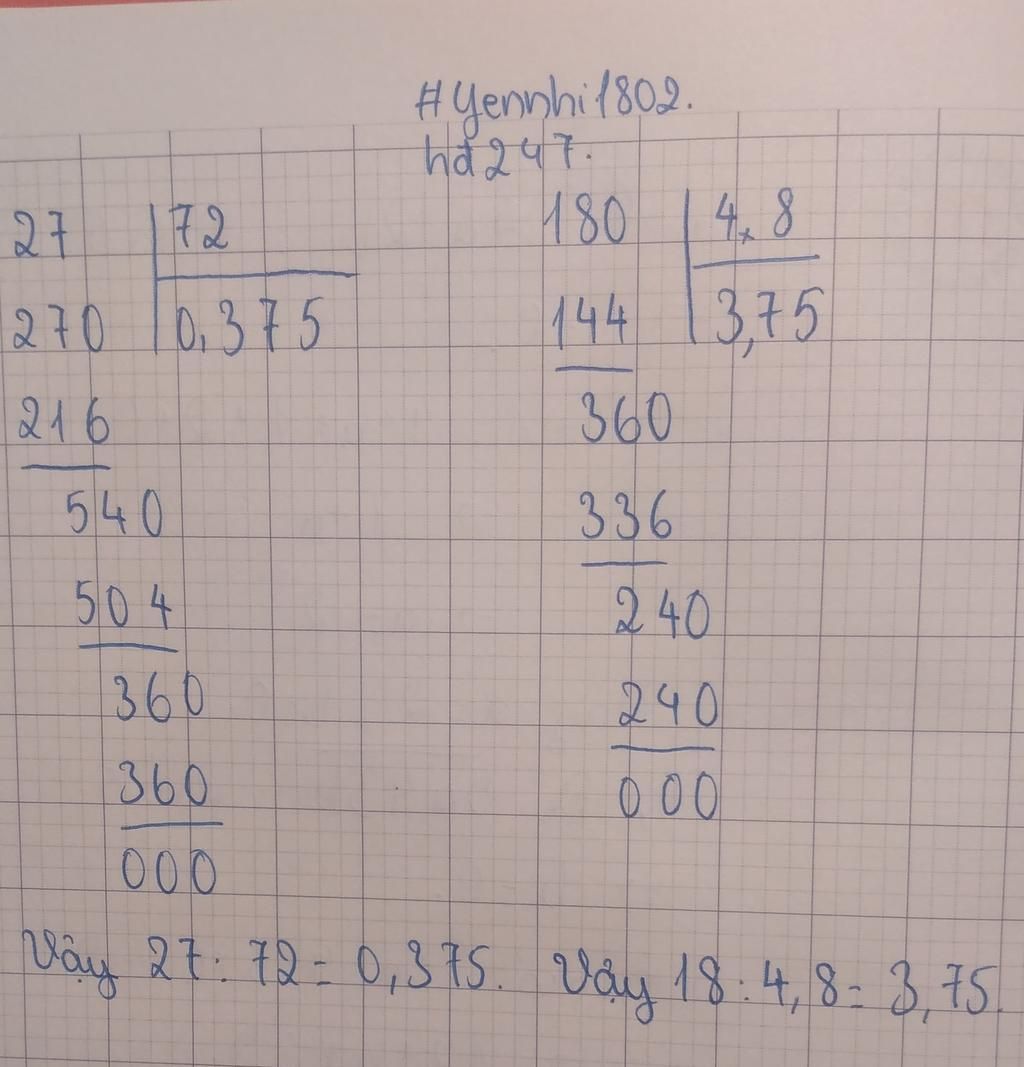 #Yennhi1802.
hđ247.
27 72
270 0,375
216
540
504
360
360
000
180 4,8
144 3,75
360
336
240
240
000
Vậy 27 : 72 = 0,375.
Vậy 18 : 4,8 = 3,75.